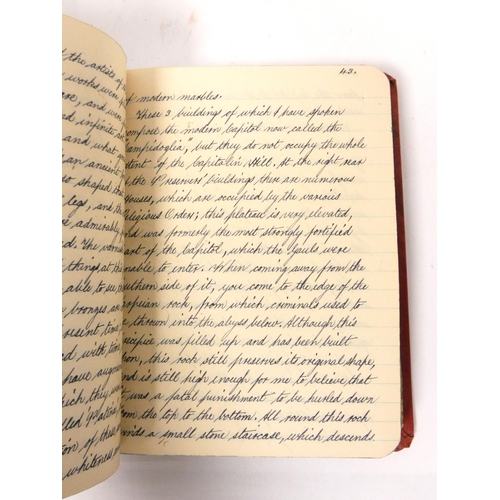 d the artists of
works were
are, and were
d infinite a
and what
an ancient
es shaped tha
legs, and the
e admirably
d. The varnis
things, at this
able to use, th
bronzes are
resent time,
d with tion
have augme
hich they w
lled
tion of these
whiteness
43.
of modern marbles.
These 3 buildings of which I have spoken
compose the modern Capitol now called the
"Campidoglia," but they do not occupy the whole
xtent of the Capitolin Hill. At the right rear
of the Conservers' buildings there are numerous
houses, which are occupied by the various
Religious Orders; this plateau is very elevated,
and was formerly the most strongly fortified
part of the Capitol, which the Gauls were
unable to enter. When coming away from the
outhern side of it, you come to the edge of the
rpeian rock, from which criminals used to
be thrown into the abyss below. Although this
recipice was filled up and has been built
on, this rock still preserves its original shape,
and is still high enough for me to believe that
t was a fatal punishment to be hurled down
from the top to the bottom. All round this rock
inds a small stone staircase, which descends